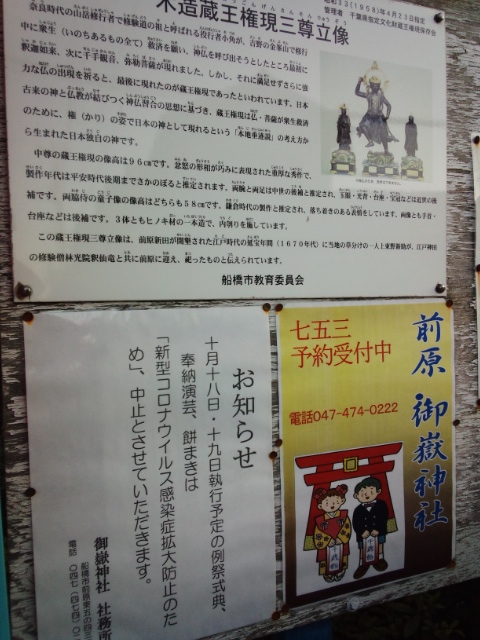 木造蔵王権現三尊立像
昭和33(1958)年4月23日指定
管理者 千葉県指定文化財蔵王権現保存会
奈良時代の山岳修行者で修験道の祖と呼ばれる役行者小角が、吉野の金峯山で修行
中に衆生(いのちあるもの全て)救済を願い、神仏を呼び出そうとしたところ最初に
釈迦如来、次に千手観音、弥勒菩薩が現れました。しかし、それに満足せずさらに強
力な仏の出現を祈ると、最後に現れたのが蔵王権現であったといわれています。日本
古来の神と仏教が結びつく神仏習合の思想に基づき、蔵王権現は仏・菩薩が衆生救済
のために、権(かり)の姿で日本の神として現れるという「本地垂迹説」の考え方か
ら生まれた日本独自の神です。
中尊の蔵王権現の像高は96㎝です。忿怒の形相が巧みに表現された重厚な秀作で、
製作年代は平安時代後期までさかのぼると推定されます。両腕と両足は中世の後補と推定され、玉眼・光背・台座・宝冠などは近世の後
補です。両脇侍の童子像の像高はどちらも58㎝です。鎌倉時代の製作と推定され、落ち着きのある表情をしています。両像とも手首・
台座などは後補です。3体ともヒノキ材の一木造で、内刳りを施しています。
この蔵王権現三尊立像は、前原新田が開墾された江戸時代の延宝年間(1670年代)に当地の草分けの一人上東野新助が、江戸神田
の修験僧林光院釈仙竜と共に前原に迎え、祀ったものと伝えられています。
船橋市教育委員会
お知らせ
十月十八日・十九日執行予定の例祭式典、
奉納演芸、餅まきは
「新型コロナウイルス感染症拡大防止のた
め」、中止とさせていただきます。
御嶽神社 社務所
船橋市前原東五の四三
電話 〇四七(四七四)〇
前原 御嶽神社
七五三
予約受付中
電話047-474-0222